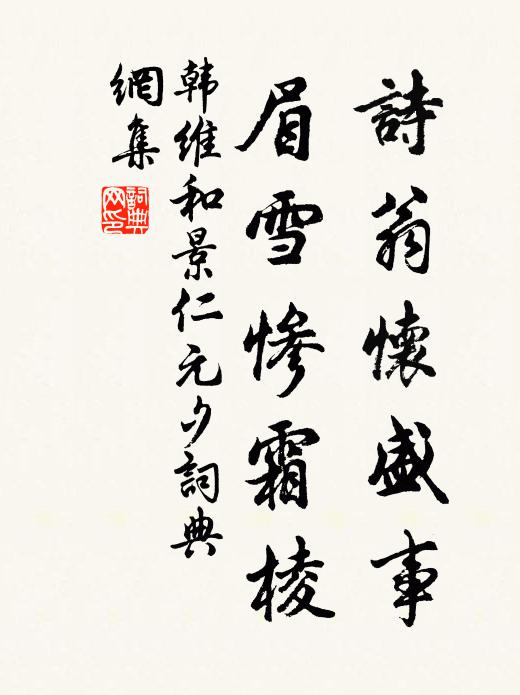 詩翁懷盛事
眉雪慘霜棱
韩維和景仁元夕詞典
網集
詞典网印